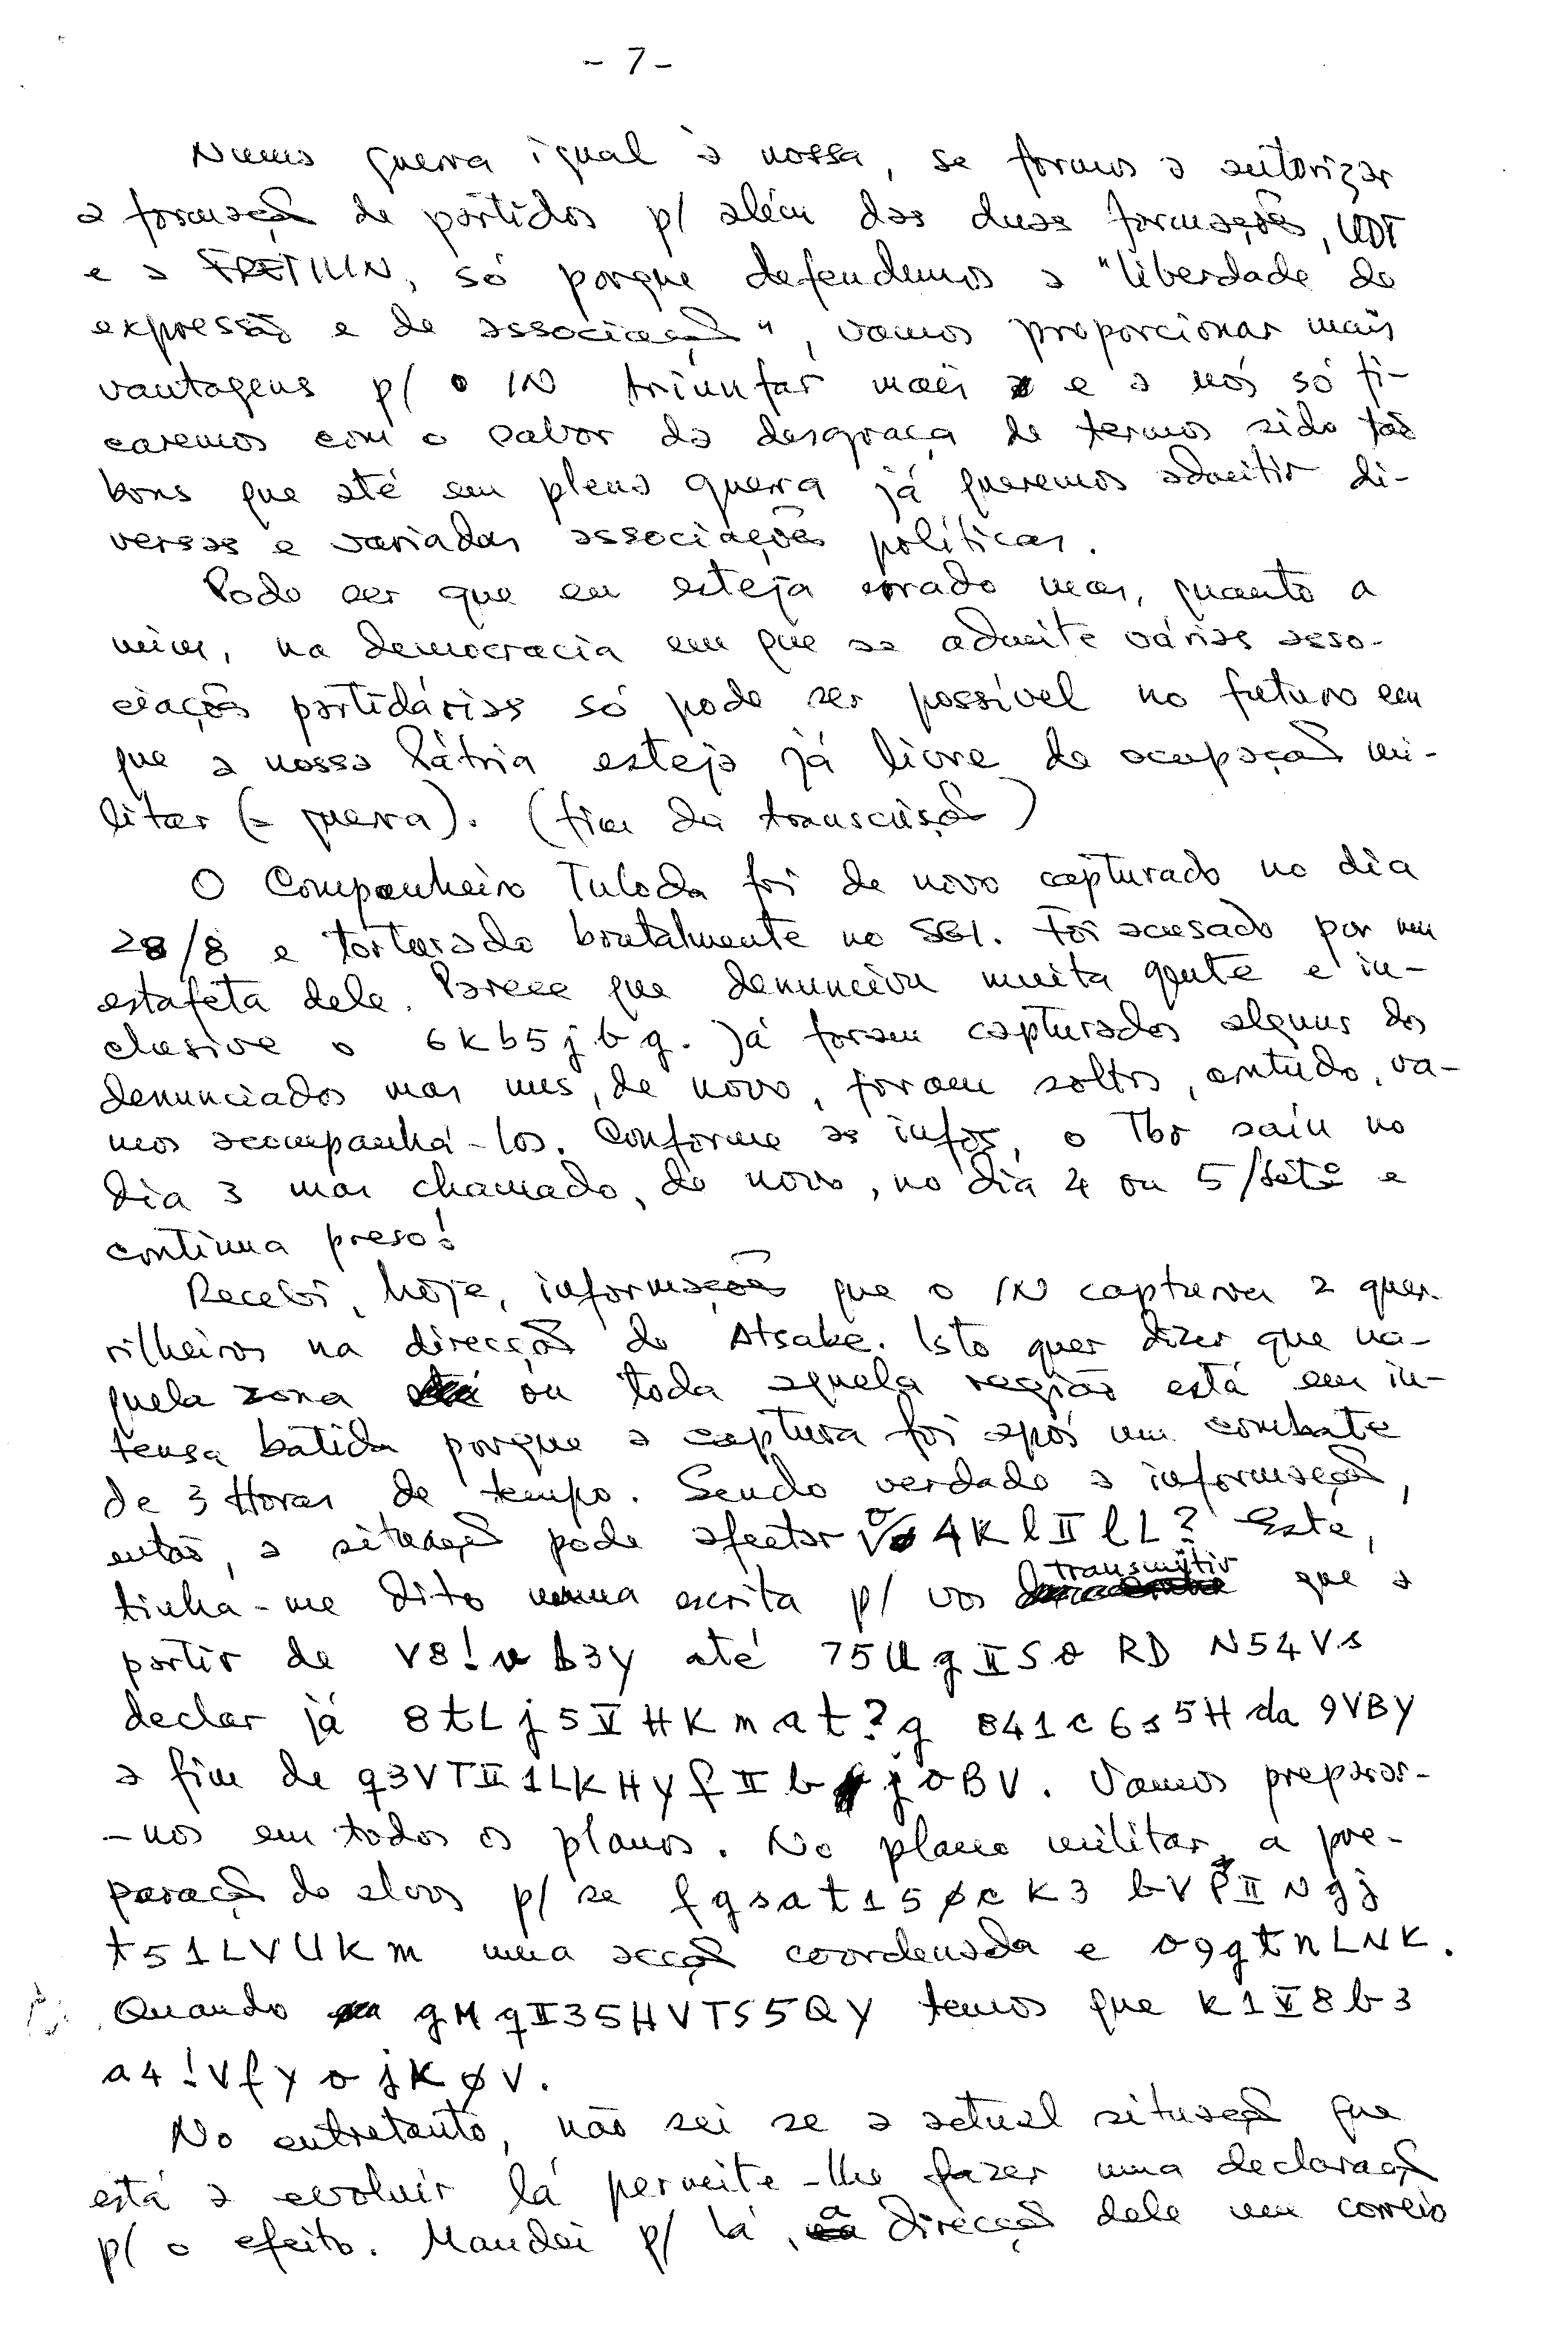 - 7 -
Numa guerra igual à nossa, se formos a autorizar
a formação de partidos p/ além das duas formações, UDT
e a FRETILIN, só porque defendemos a "liberdade de
expressão e de associação", vamos proporcionar mais
vantagens p/ o IN triunfar mais e a nós só fi-
caremos com o sabor da desgraça de termos sido tão
bons que até em plena guerra já queremos admitir di-
versas e variadas associações políticas.
Pode ser que eu esteja errado mas, quanto a
mim, na democracia em que se admite várias asso-
ciações partidárias só pode ser possível no futuro em
que a nossa Pátria esteja já livre da ocupação mi-
litar (= guerra). (fim da transcrição)
O Companheiro Tuloda foi de novo capturado no dia
28/8 e torturado brutalmente no SGI. Foi acusado por um
estafeta dele. Parece que denunciou muita gente e in-
clusive o 6kb5jbg. Já foram capturados alguns dos
denunciados mas uns, de novo, foram soltos, contudo, va-
mos acompanhá-los. Conforme as infos, o Tbr saiu no
dia 3 mas chamado, de novo, no dia 4 ou 5/Setº e
continua preso!
Recebi, hoje, informações que o IN capturou 2 guer-
rilheiros na direcção de Atsabe. Isto quer dizer que na-
quela zona ou toda aquela região está em in-
tensa batida porque a captura foi após um combate
de 3 Horas de tempo. Sendo verdade a informação,
então, a situação pode afectar o 4KlIIlL? Este,
tinha-me dito numa escrita p/ vos transmitir que a
partir de V8!v b3y até 75UgIISo RD N54Vs
declar já 8tLj5VHKmat?g 841c6s5H da 9VBY
a fim de q3VTII1LKHyfIIb joBV. Vamos preparar-
-nos em todos os planos. No plano militar, a pre-
paração de alvos p/ se fgsat15øcK3 bVPIINgj
t51LVUKm uma acção coordenada e o9gtnLNK.
Quando gMqII35HVTS5QY temos que K1V8b3
a4!VfyojKøV.
No entretanto, não sei se a actual situação que
está a evoluir lá permite-lhe fazer uma declaração
p/ o efeito. Mandei p/ lá, à direcção dele um correio